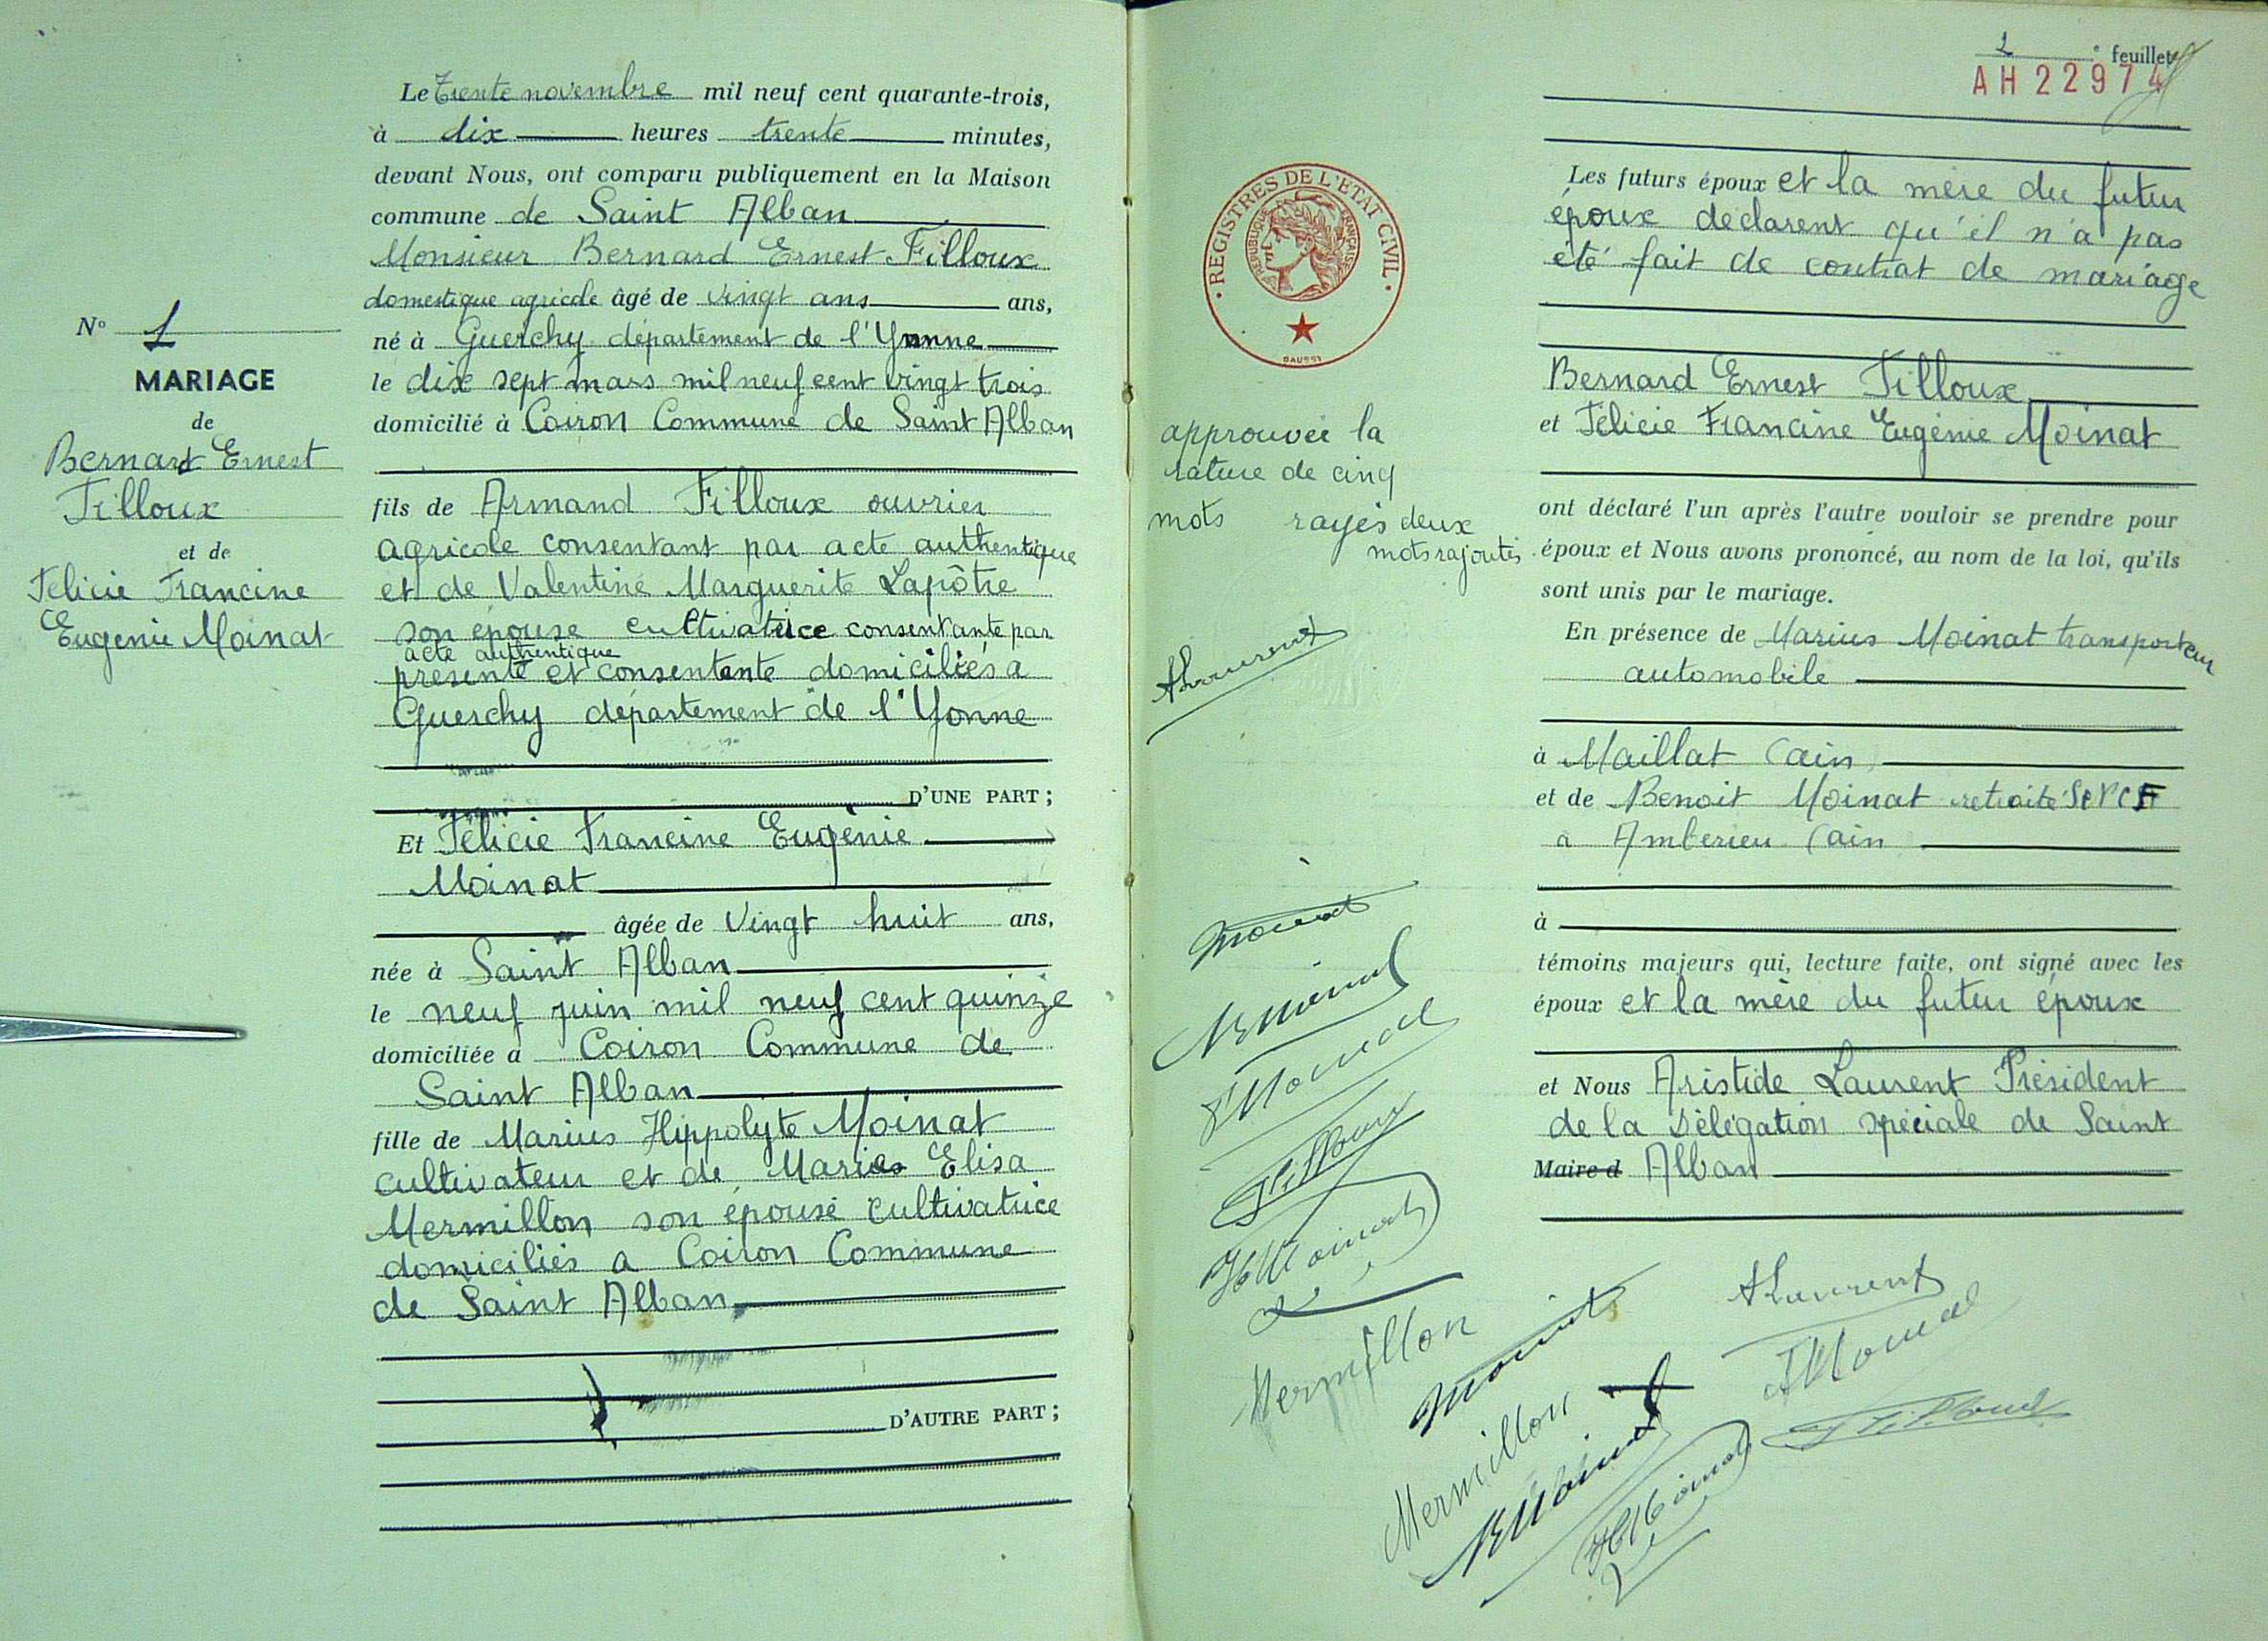 N° 1
MARIAGE
de
Bernard Ernest
Filloux
et de
Félicie Francine
Eugenie Moinat
Le Trente novembre mil neuf cent quarante-trois,
à dix heures trente minutes,
devant Nous, ont comparu publiquement en la Maison
commune de Saint Alban
Monsieur Bernard Ernest Filloux
domestique agricole âgé de vingt ans ans,
né à Guerchy département de l'Yonne
le dix sept mars mil neuf cent vingt trois
domicilié à Coiron Commune de Saint Alban
fils de Armand Filloux ouvrier
agricole consentant par acte authentique
et de Valentine Marguerite Lapôtre
son épouse cultivatrice consentante par
acte authentique
présente et consentente domiciliés a
Guerchy département de l'Yonne
D'UNE PART ;
Et Félicie Francine Eugènie
Moinat
âgée de Vingt huit ans,
née à Saint Alban
le neuf juin mil neuf cent quinze
domiciliée à Coiron Commune de
Saint Alban
fille de Marius Hippolyte Moinat
cultivateur et de Marie Elisa
Mermillon son épouse cultivatrice
domiciliés a Coiron Commune
de Saint Alban
D'AUTRE PART ;
2 e feuillet
AH 22974
REGISTRES DE L'ETAT CIVIL
REPUBLIQUE FRANÇAISE
approuvée la
rature de cinq
mots rayés deux
mots rajoutés
ALaurent
Les futurs époux et la mère du futur
époux déclarent qu'il n'a pas
été fait de contrat de mariage
Bernard Ernest Filloux
et Félicie Francine Eugénie Moinat
ont déclaré l'un après l'autre vouloir se prendre pour
époux et Nous avons prononcé, au nom de la loi, qu'ils
sont unis par le mariage.
En présence de Marius Moinat transporteur
automobile
à Maillat (ain
et de Benoit Moinat retraité SNCF
a Amberieu (ain
à
témoins majeurs qui, lecture faite, ont signé avec les
époux et la mère du futur époux
et Nous Aristide Laurent Président
de la Délégation spéciale de Saint
Maire d Alban
Moinat
BMoinat
FMoinat
Filloux
HMoinat
Mermillon
Moinat
ALaurent
FMoinat
Mermillon
BMoinat
HMoinat
Filloux